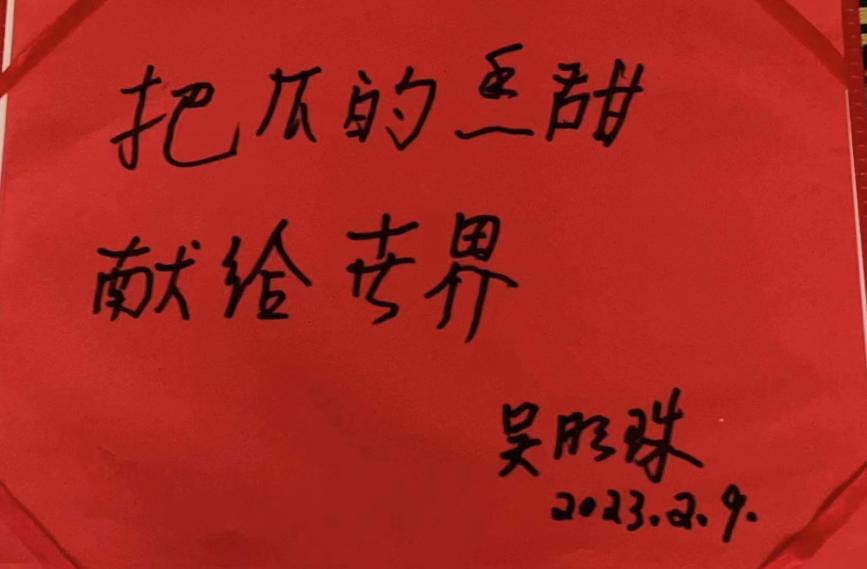 把瓜的甜
献给世界
吴明珠
2023.2.9.